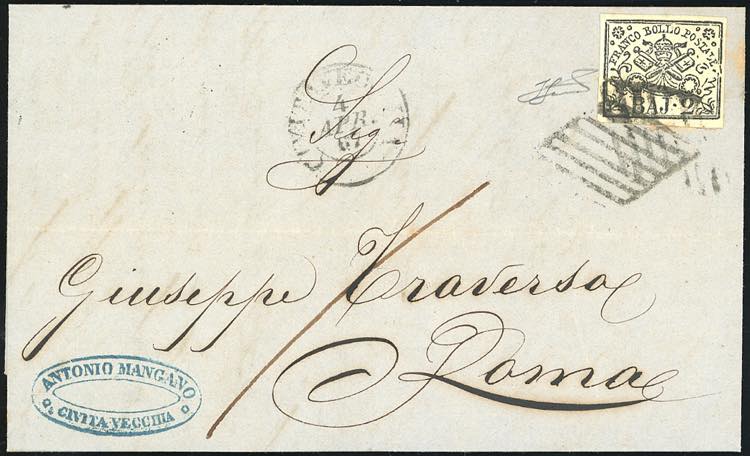 FRANCO BOLLO POSTALE
BAJ.
CIVITAVECCHIA
4
APR.
67
Sig
Giuseppe Traversa
Roma
ANTONIO MANGANO
CIVITA VECCHIA